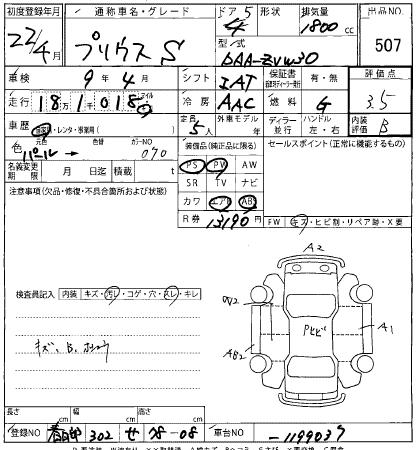 初度登録年月 通称車名・グレード ドア 形状 排気量 出品NO.
22/4月 プリウス S 5 1800cc 507
型式 DAA-ZVW30
車検 9年4月 シフト IAT 保証書 有・無 評価点 3.5
走行 18万1018 冷房 AAC 燃料 G 内装評価 B
車歴 自家用・レンタ・事業用( ) 定員 5人 外車モデル年 ディーラー 並行 ハンドル 左・右
色 パール 色替 カラーNO 070 装備品(純正品に限る) セールスポイント(正常に機能するもの)
名義変更期限 月 日迄 積載 t PS PW AW
注意事項(欠品・修復・不具合箇所および状態) SR TV ナビ
カワ エアB ABS
R券 13190円 FW キズ・ヒビ割・リペア跡・X要
検査員記入 内装 キズ・汚レ・コゲ・穴・スレ・キレ
キズ、B、
A2
W2
Pヒビ
A1
AB2
長さ cm 幅 cm 高さ cm
登録NO 春日部 302 せ 78-08 車台NO -1199037